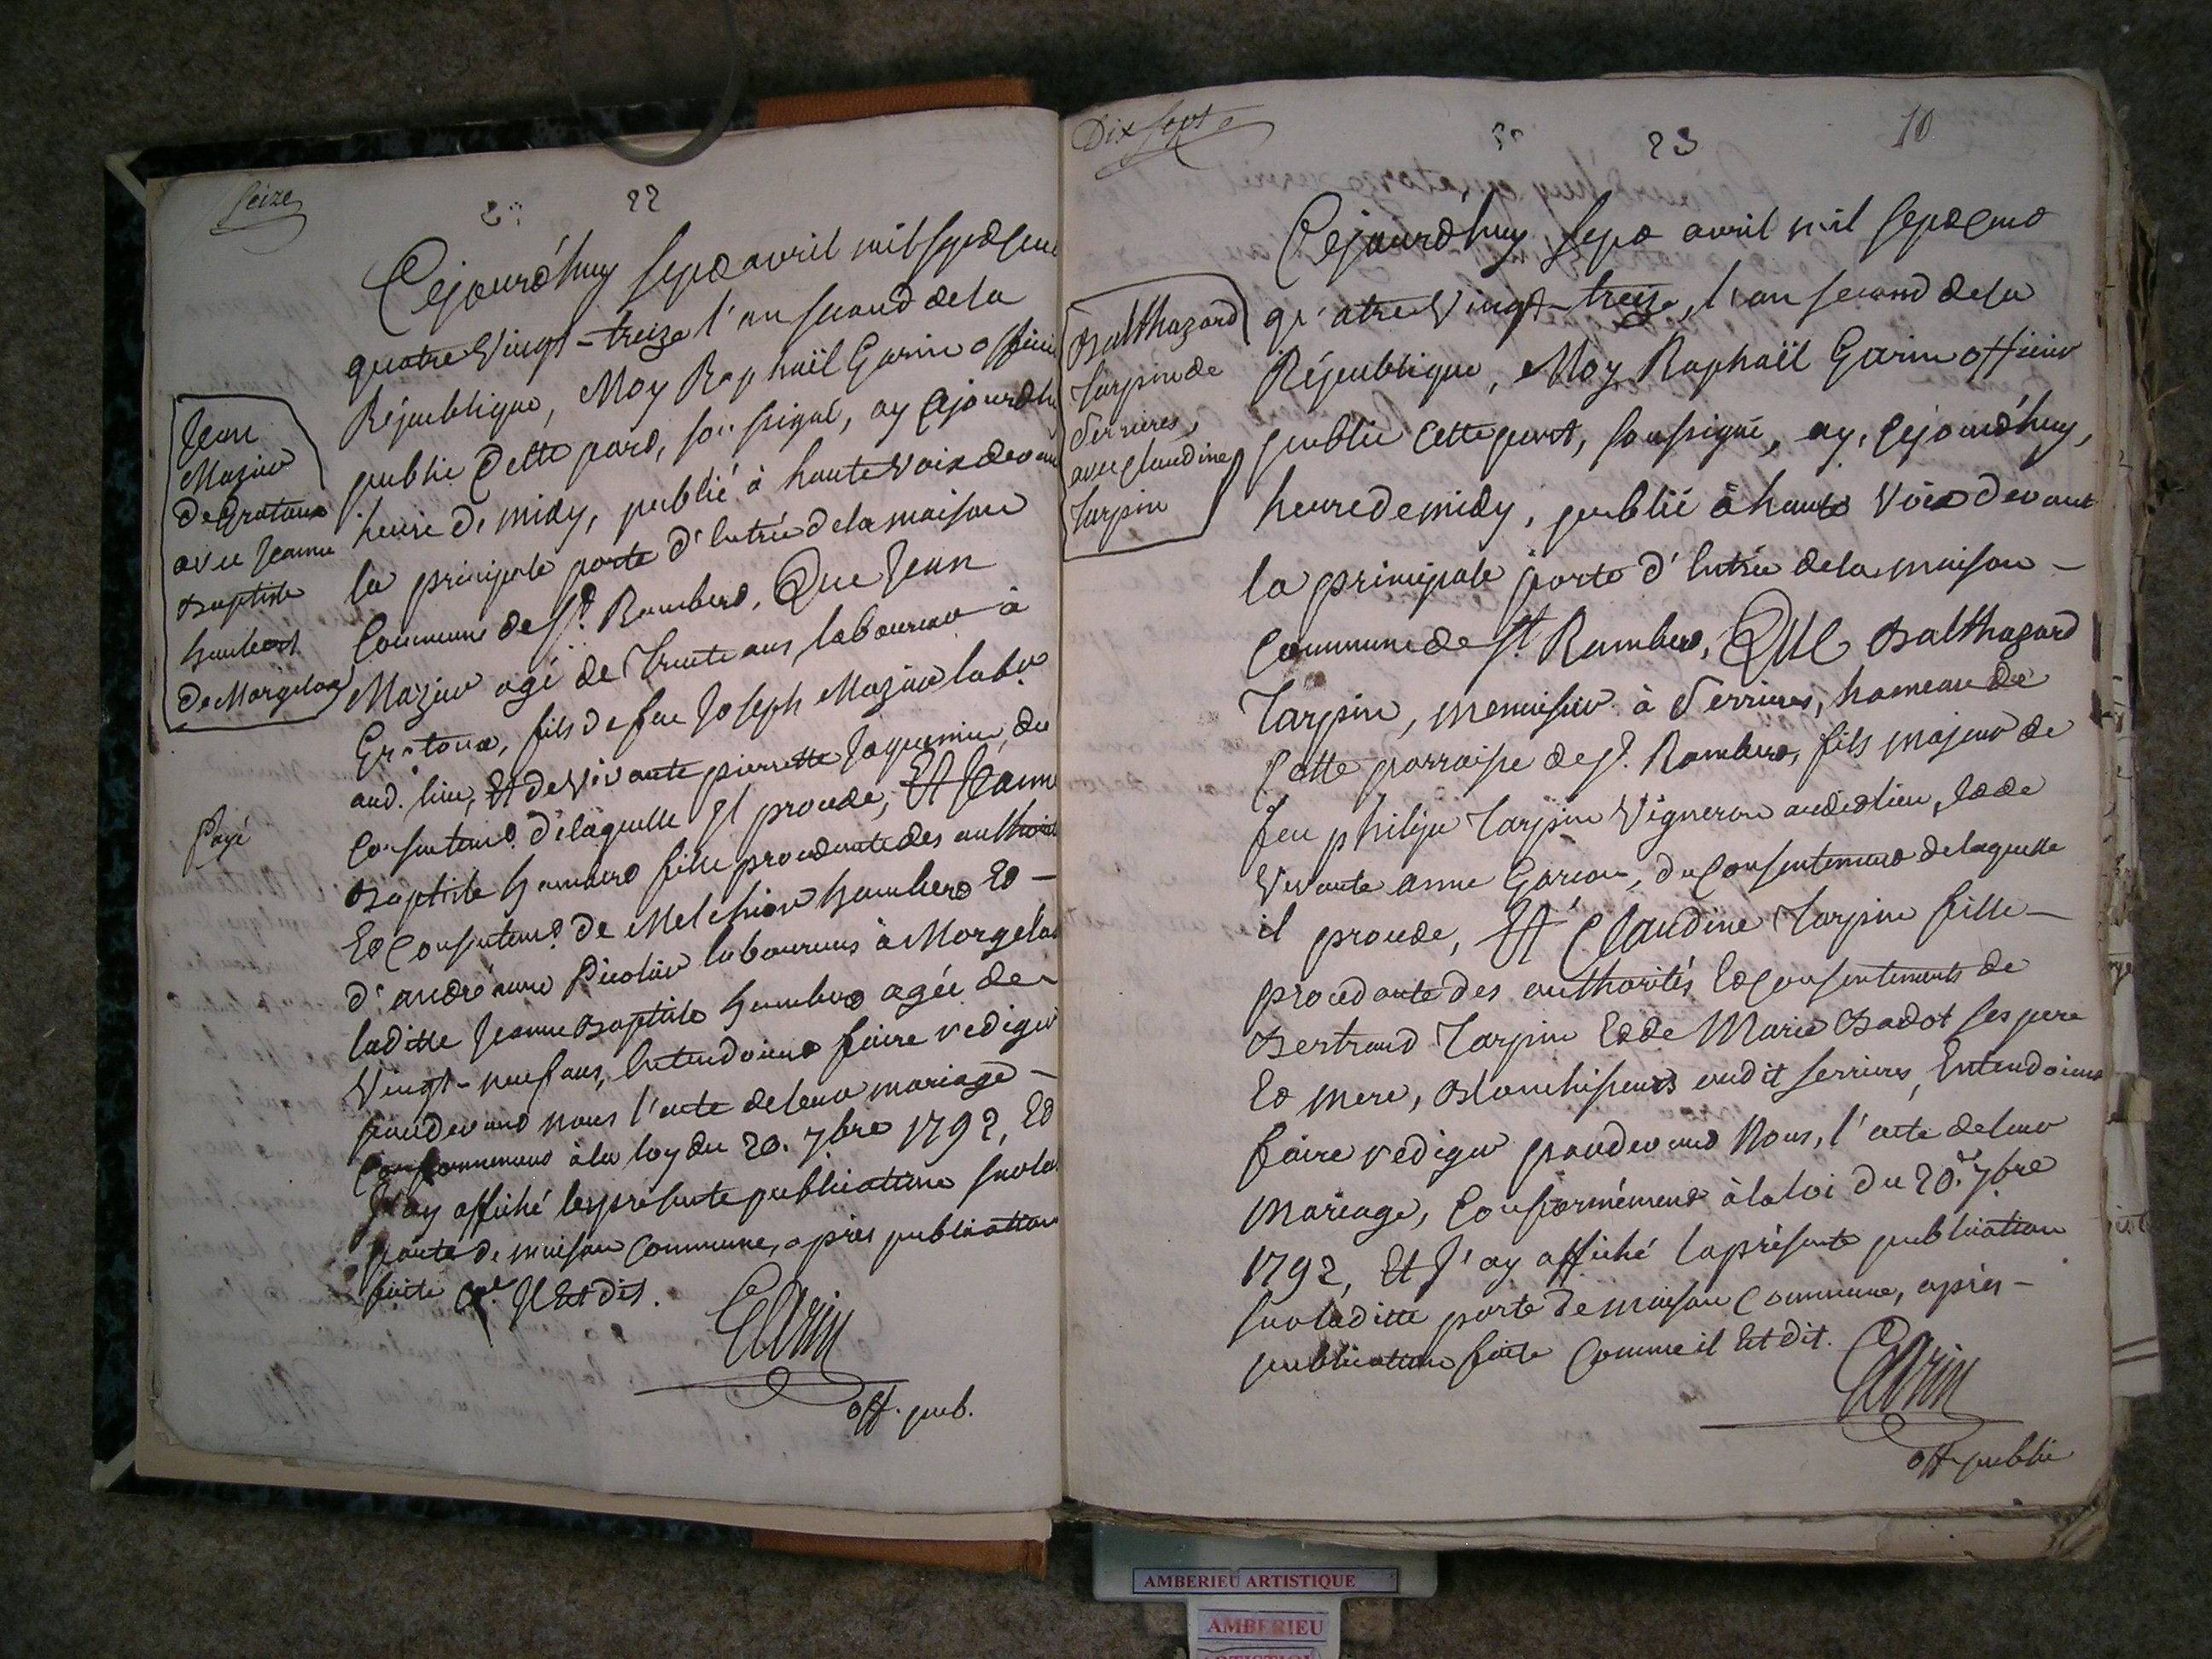 Seize
22
Cejourd'huy sept avril mil sept cent
quatre Vingt-treize l'an second de la
République, Moy Raphaël Garin officier
public Cette part, soussigné, ay Cejourd'hu
heure de midy, publié à haute Voix devant
la principale porte d'Entrée de la maison
Commune de St. Rambert, Que Jean
Mazuir agé de trente ans, laboureur à
Gratoux, fils de feu Joseph Mazuir labr
aud. lieu, Et de Vivante pierrette Jaquemin, du
Consentemt. de laquelle Il procede, Et Jeanne
Baptiste humbert fille procedante des authorit
Et Consentemt. de Melchior humbert Et -
d'andréanne laboureurs à Morgelas
laditte Jeanne Baptiste humbert agée de
Vingt-neuf ans, Entendoient faire rediger
pardevant nous l'acte de leur mariage -
Conformement à la loy du 20. 7bre 1792, Et
J'ay affiché la presente publication sur la
porte de maison Commune, après publication
faite Il Est dit.
Garin
off. pub.
Jean
Mazuir
de Gratoux
avec Jeanne
Baptiste
humbert
de Morgelas
Payé
Dix Sept
23
10
Cejourd'huy sept avril mil sept cent
quatre Vingt-treize, l'an second de la
République, Moy Raphaël Garin officier
public Cette part, soussigné, ay, Cejourd'huy,
heure de midy, publié à haute Voix devant
la principale porte d'Entrée de la maison -
Commune de St. Rambert, QUE Balthazard
Tarpin, menuisier à Serrieres, hameau de
Cette parroisse de St. Rambert, fils majeur de
feu philipe Tarpin Vigneron audit lieu, Et de
Vivante anne Garcon, du Consentement de laquelle
il procede, Et Claudine Tarpin fille -
procedante des authorités Et Consentements de
Bertrand Tarpin Et de Marie Badot ses pere
Et mere, Blanchisseurs audit serrieres, Entendoient
faire rediger pardevant Nous, l'acte de leur
mariage, Conformément à la loi du 20. 7bre
1792, Et J'ay affiché la présente publication
sur laditte porte de maison Commune, après -
publication faite Comme il Est dit.
Garin
off. public
Balthazard
Tarpin de
Serrieres,
avec Claudine
Tarpin
AMBERIEU ARTISTIQUE
AMBERIEU
ARTISTIQUE